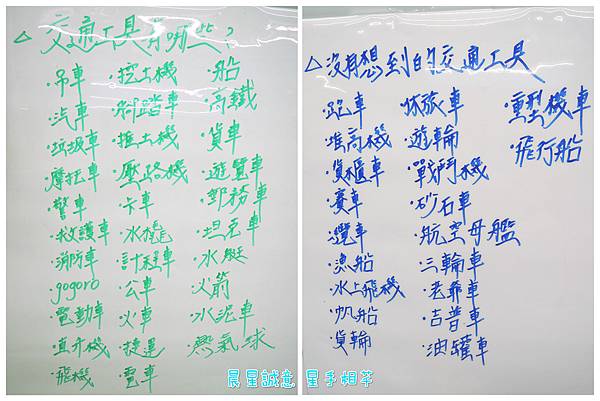 △交通工具有哪些？
·吊車
·汽車
·垃圾車
·摩托車
·警車
·救護車
·消防車
·gogoro
·電動車
·直升機
·飛機
·挖土機
·腳踏車
·推土機
·壓路機
·卡車
·水陸
·計程車
·公車
·火車
·捷運
·電車
·船
·高鐵
·貨車
·遊覽車
·郵務車
·坦克車
·水艇
·火箭
·水泥車
·熱氣球
△沒有想到的交通工具
·跑車
·堆高機
·貨櫃車
·賽車
·纜車
·漁船
·水上飛機
·帆船
·貨輪
·休旅車
·遊輪
·戰鬥機
·砂石車
·航空母艦
·三輪車
·老爺車
·吉普車
·油罐車
·重型機車
·飛行船
晨星誠意 星手相芊